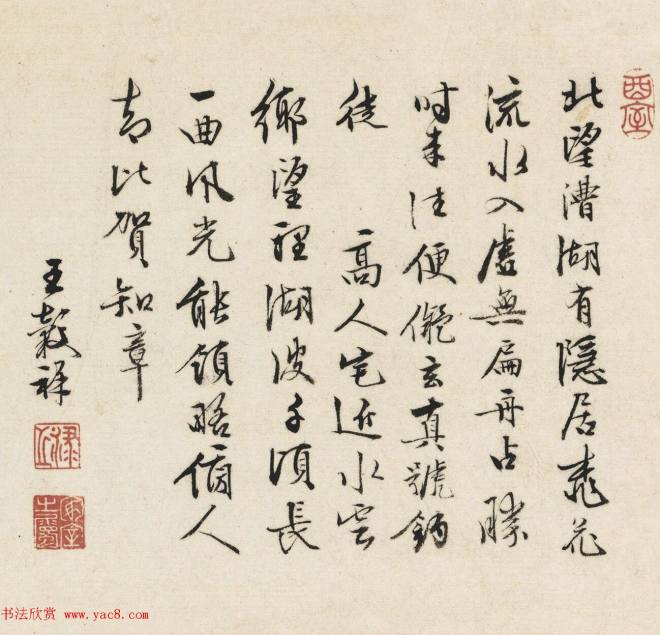 酉室
北望漕湖有隱居桃花
流水入虛無扁舟占勝
時來往便儗玄真號釣
徒 高人宅近水雲
鄉望裡湖波千頃長
一曲風光能領略人
却比賀知章
王穀祥
书法欣赏 www.yac8.com